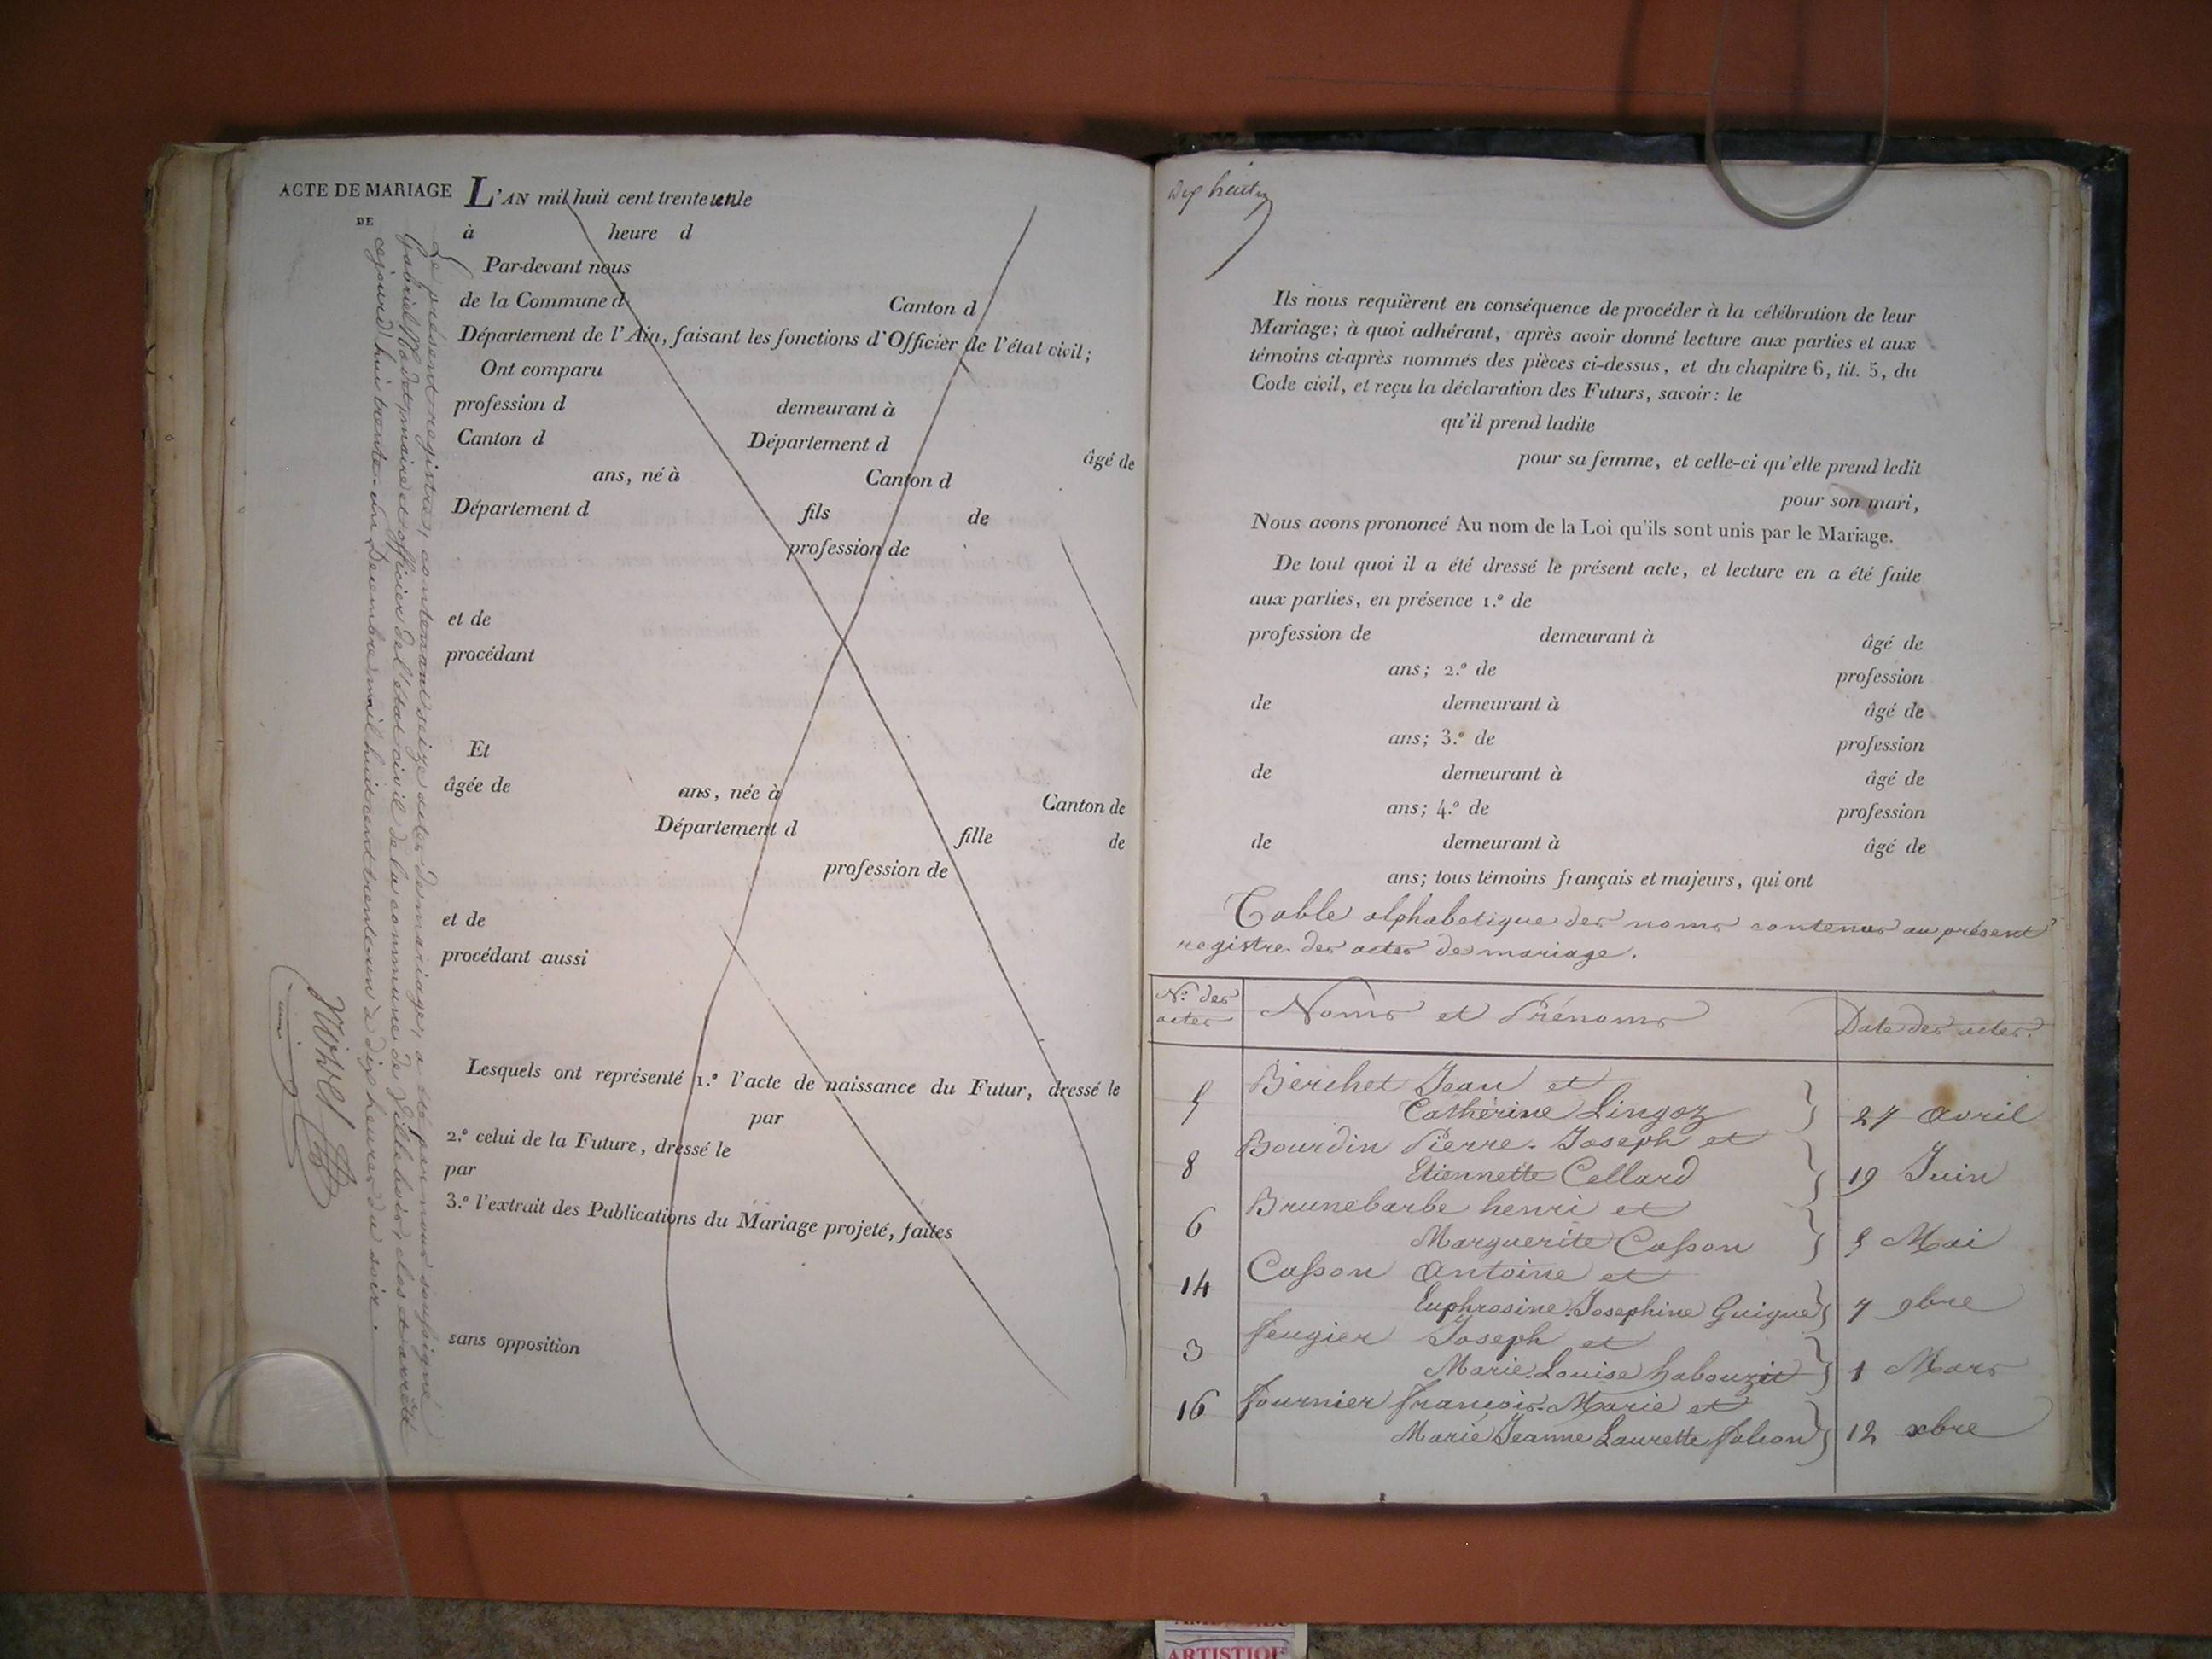 ACTE DE MARIAGE
DE
L'AN mil huit cent trente un le
à heure d
Par-devant nous
de la Commune d Canton d
Département de l'Ain, faisant les fonctions d'Officier de l'état civil;
Ont comparu
profession d demeurant à
Canton d Département d âgé de
ans, né à Canton d
Département d fils de
profession de
et de
procédant
Et
âgée de ans, née à Canton de
Département d fille de
profession de
et de
procédant aussi
Lesquels ont représenté 1.º l'acte de naissance du Futur, dressé le
par
2.º celui de la Future, dressé le
par
3.º l'extrait des Publications du Mariage projeté, faites
sans opposition
Le présent registre, contenant seize actes de mariage, a été par nous soussigné
Gabriel maire et officier de l'état civil de la commune de Villebois, clos et arrêté
cejourd'hui trente-un Decembre mil huit cent trente un à dix heures du soir.
Dix huit
Ils nous requièrent en conséquence de procéder à la célébration de leur
Mariage; à quoi adhérant, après avoir donné lecture aux parties et aux
témoins ci-après nommés des pièces ci-dessus, et du chapitre 6, tit. 5, du
Code civil, et reçu la déclaration des Futurs, savoir: le
qu'il prend ladite
pour sa femme, et celle-ci qu'elle prend ledit
pour son mari,
Nous avons prononcé Au nom de la Loi qu'ils sont unis par le Mariage.
De tout quoi il a été dressé le présent acte, et lecture en a été faite
aux parties, en présence 1.º de
profession de demeurant à âgé de
ans; 2.º de profession
de demeurant à âgé de
ans; 3.º de profession
de demeurant à âgé de
ans; 4.º de profession
de demeurant à âgé de
ans; tous témoins français et majeurs, qui ont
Table alphabetique des noms contenus au présent
registre des actes de mariage.
N.º des actes Noms et Prénoms Date des actes.
Berchet Jean et
5 Catherine Lingoz 27 avril
Bourdin Pierre-Joseph et
8 Etiennette Cellard 19 Juin
Brunebarbe henri et
6 Marguerite Casson 5 Mai
Casson antoine et
14 Euphrosine-Josephine Guigue 7 9bre
feugier Joseph et
3 Marie-Louise habouzit 1 Mars
fournier françois-Marie et
16 Marie Jeanne Laurette falcon 12 xbre
ARTISTIQUE